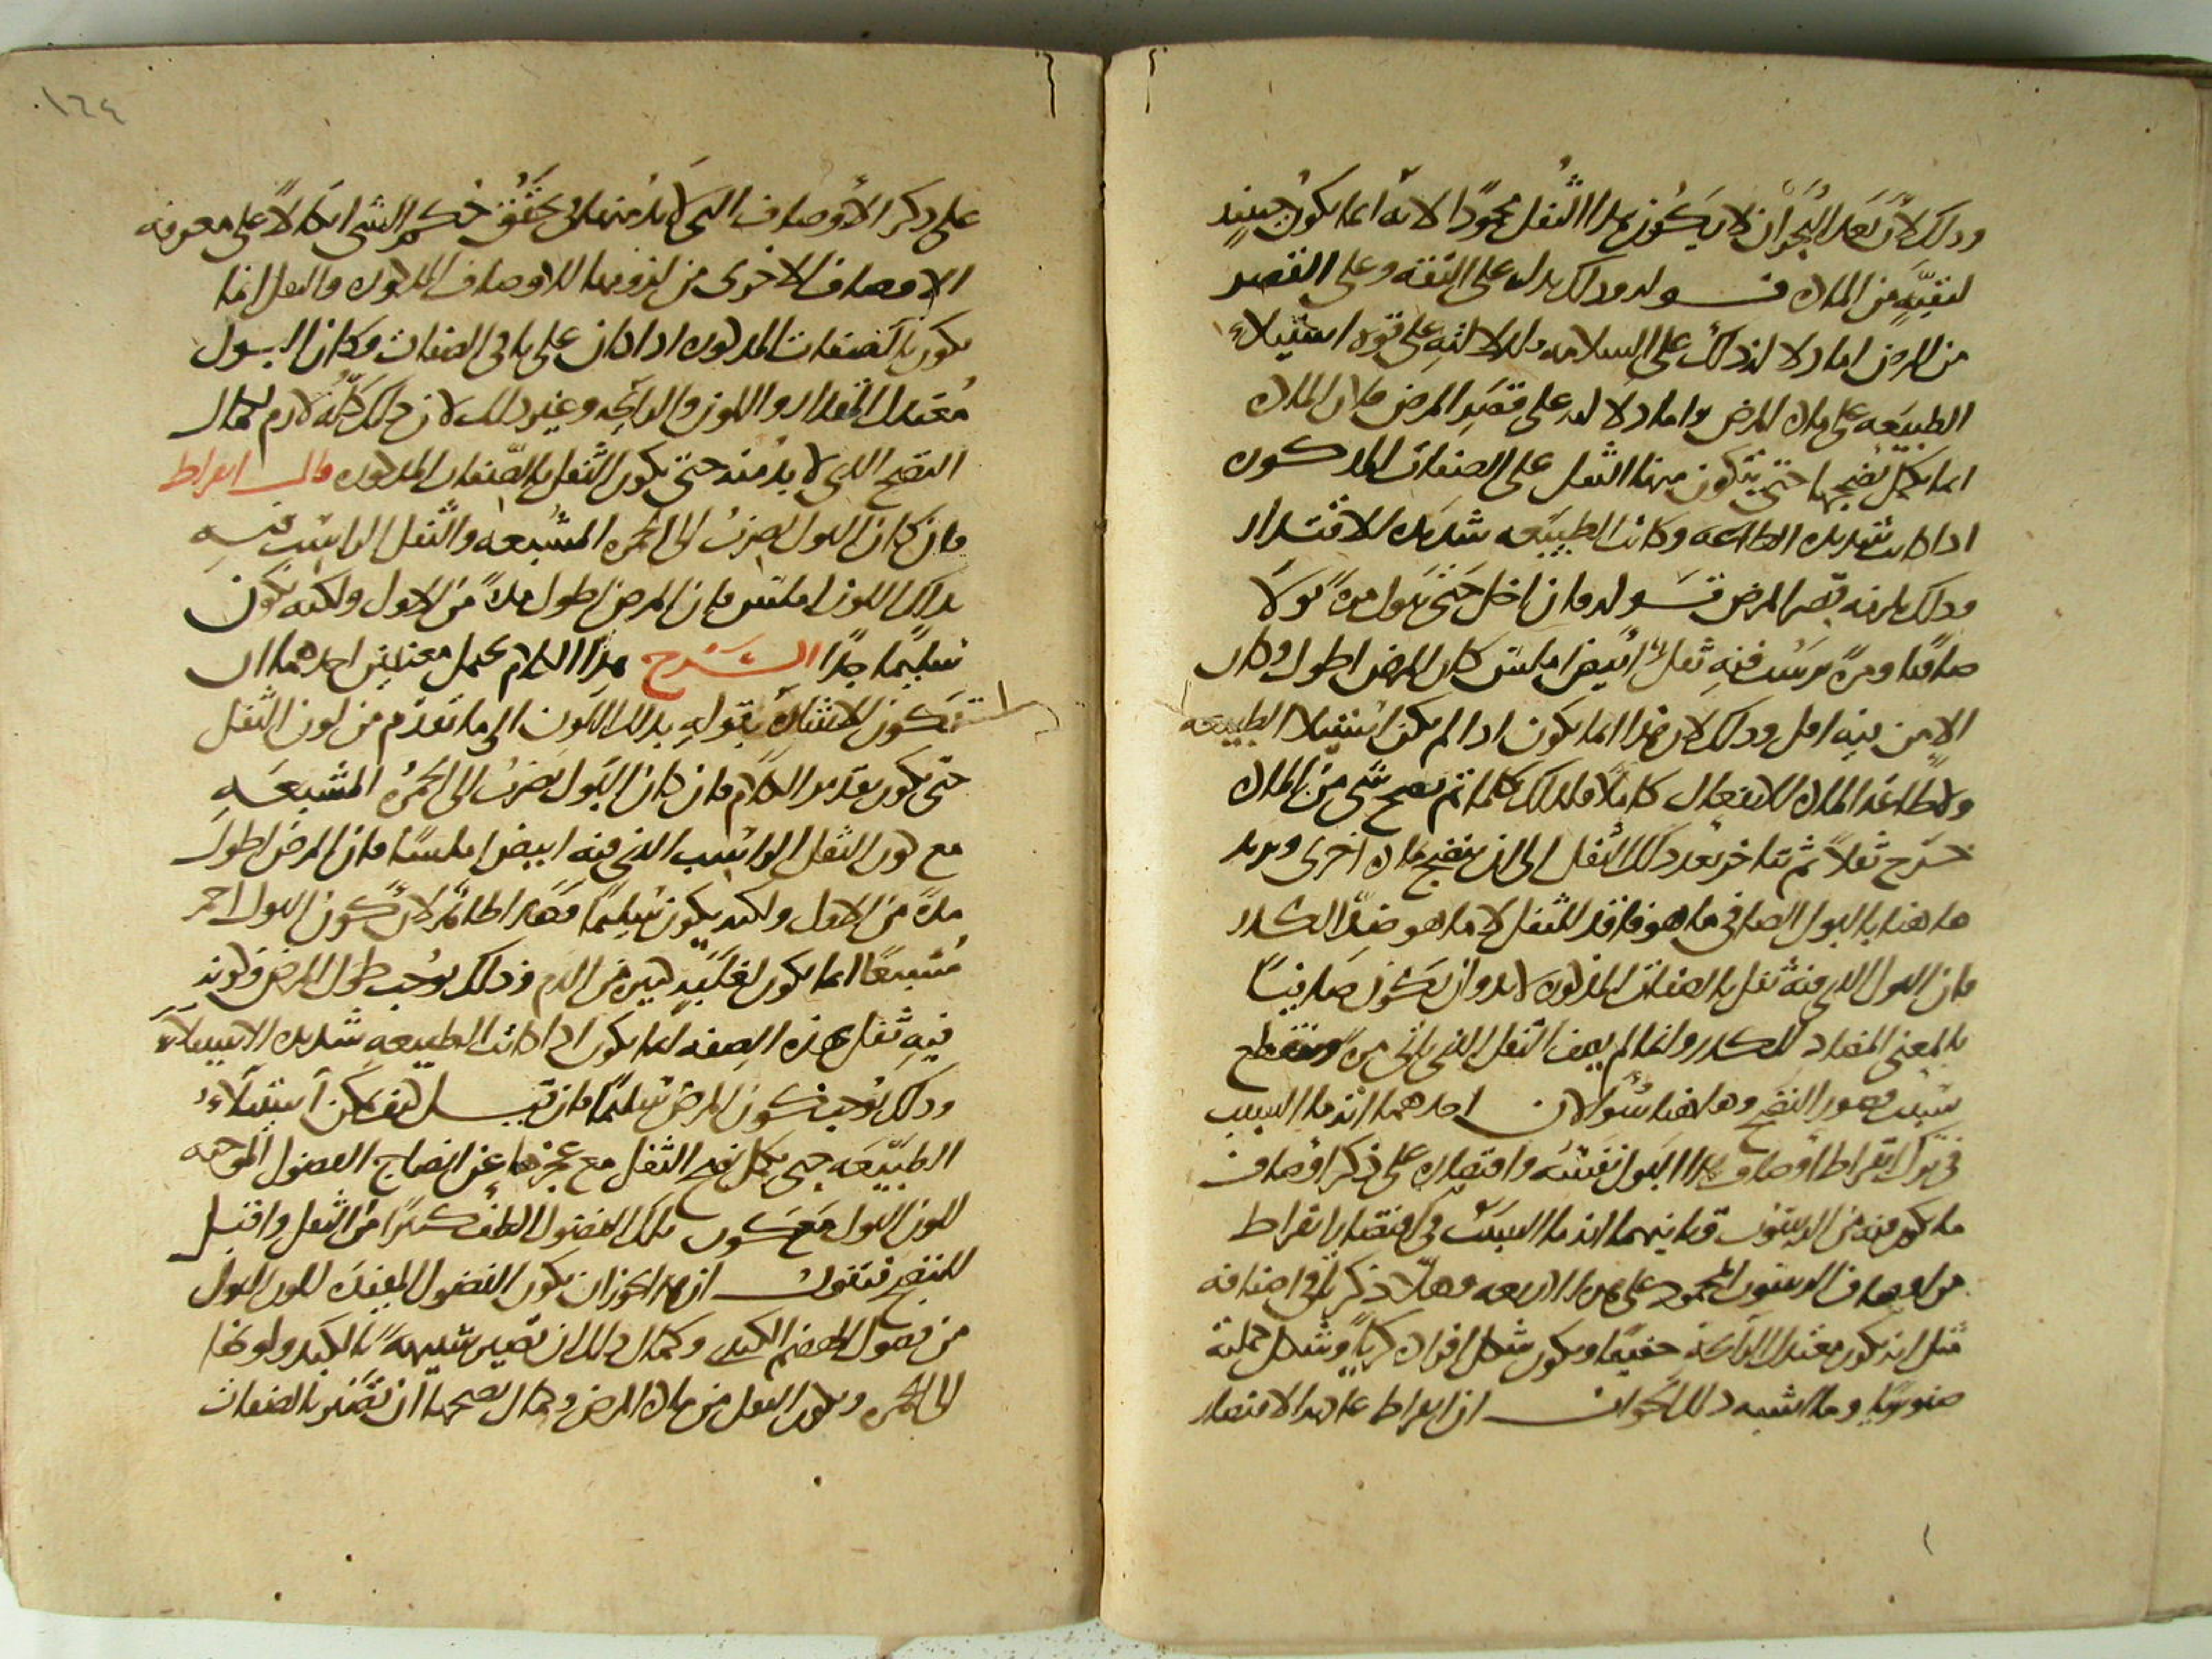 وذلك لأن بعد البحران لا يكون هذا الثفل محمودا لانه انما يكون حينئذ
لبقية من المادة قوله وذلك يدل على الثقة وعلى القصر
من المرض اما دلالة ذلك على السلامه فلدلالته على قوة استيلاء
الطبيعه على مادة المرض واما دلالته على قصر المرض فلان المادة
انما يكمل نضجها حتى يتكون منها الثفل على الصفات المذكورة
اذا كانت شديدة الطاعه وكانت الطبيعه شديدة الاقتدار
وذلك يلزمه قصر المرض قوله فان اخل حتى يبول مرة بولا
صافيا ومرة يرسب فيه ثفل ابيض املس كان المرض اطول وكان
الامن فيه اقل وذلك لان هذا انما يكون اذا لم يكن استيلا الطبيعه
ولا طاعة المادة للانفعال كاملا فلذلك كلما تم نضج شى من المادة
خرج ثفلا ثم تتاخر بعد ذلك الثفل الى ان ينضج مادة اخرى ويريد
هاهنا بالبول الصافى ما هو فاقد للثفل لا ما هو ضد الكدر
فان البول الذى فيه ثفل بالصفات المذكورة لابد وان يكون صافيا
بالمعنى المضاد للكدر وانما لم يصف الثفل الذى ياتى مرة وينقطع
بسبب قصور النضج وهاهنا سؤالان احدهما انه ما السبب
فى ترك ابقراط اوصاف هذا البول نفسه واقتصاره على ذكر اوصاف
ما يكون فيه من الرسوب وثانيهما انه ما السبب فى اقتصار ابقراط
من اوصاف الرسوب المحمود على هذه الاربعه وهلا ذكر باقى اوصافه
مثل انه يكون معتدل الرائحة خفيفا ويكون شكل افراده كريا وشكل جملته
صنوبريا وما اشبه ذلك الجواب ان ابقراط عادته الاقتصار
١٦٤
على ذكر الاوصاف التى لا بد منها فى تحقق حكم الشى اتكالا على معرفة
الاوصاف الاخرى من لزومها للاوصاف المذكورة والثفل انما
يكون بالصفات المذكوره اذا كان على باقى الصفات وكان البول
معتدل المقدار واللون والرائحه وغير ذلك لان ذلك كله لازم لكمال
النضج الذى لا بد منه حتى يكون الثفل بالصفات المذكوره قال ابقراط
فان كان البول يضرب الى الحمره المشبعه والثفل الراسب فيه
بذلك اللون املس فان المرض اطول مدة من الاول ولكنه يكون
سليما جدا الشرح هذا الكلام يحتمل معنيين احدهما ان
تكون الاشارة بقوله بذلك اللون الى ما تقدم من لون الثفل
حتى يكون تقدير الكلام فان كان البول يضرب الى الحمرة المشبعه
مع كون الثفل الراسب الذى فيه ابيض املسا فان المرض اطول
مدة من الاول ولكنه يكون سليما وهذا ظاهر لان كون البول احمر
مشبعا انما يكون لغلبة كثيره من الدم وذلك يوجب طول المرض وكونه
فيه ثفل بهذه الصفه انما يكون اذا كانت الطبيعه شديدة الاستيلاء
وذلك يوجب كون المرض سليما فان قيل كيف يمكن استيلاء
الطبيعه حتى يكمل نضج الثفل مع عجزها عن انضاج الفضول الموجبه
للون البول مع كون تلك الفضول الطف كثيرا من الثفل واقبل
للنضج فنقول ان هذا يجوز ان يكون الفضول المفيده للون البول
من فضول الهضم الكبدى وكمال ذلك ان تصير شبيهة بالكبد ولونها
الى الحمره ويكون الثفل من مادة المرض وكمال نضجها ان تصير بالصفات